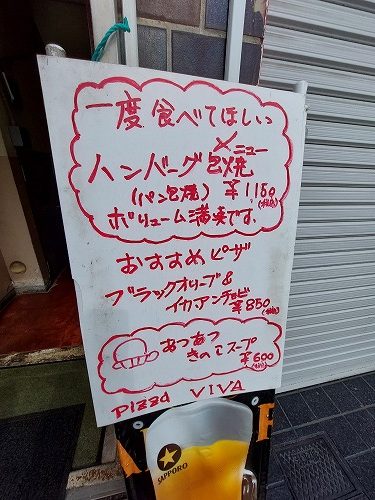 一度食べてほしい
メニュー
ハンバーグ包焼
(パン包焼) ¥1150
(税込)
ボリューム満実です。
おすすめピザ
ブラックオリーブ&
イカ、アンチョビ
¥850 (税込)
あつあつ
きのこスープ
¥600
(税込)
PIZZA VIVA
SAPPORO